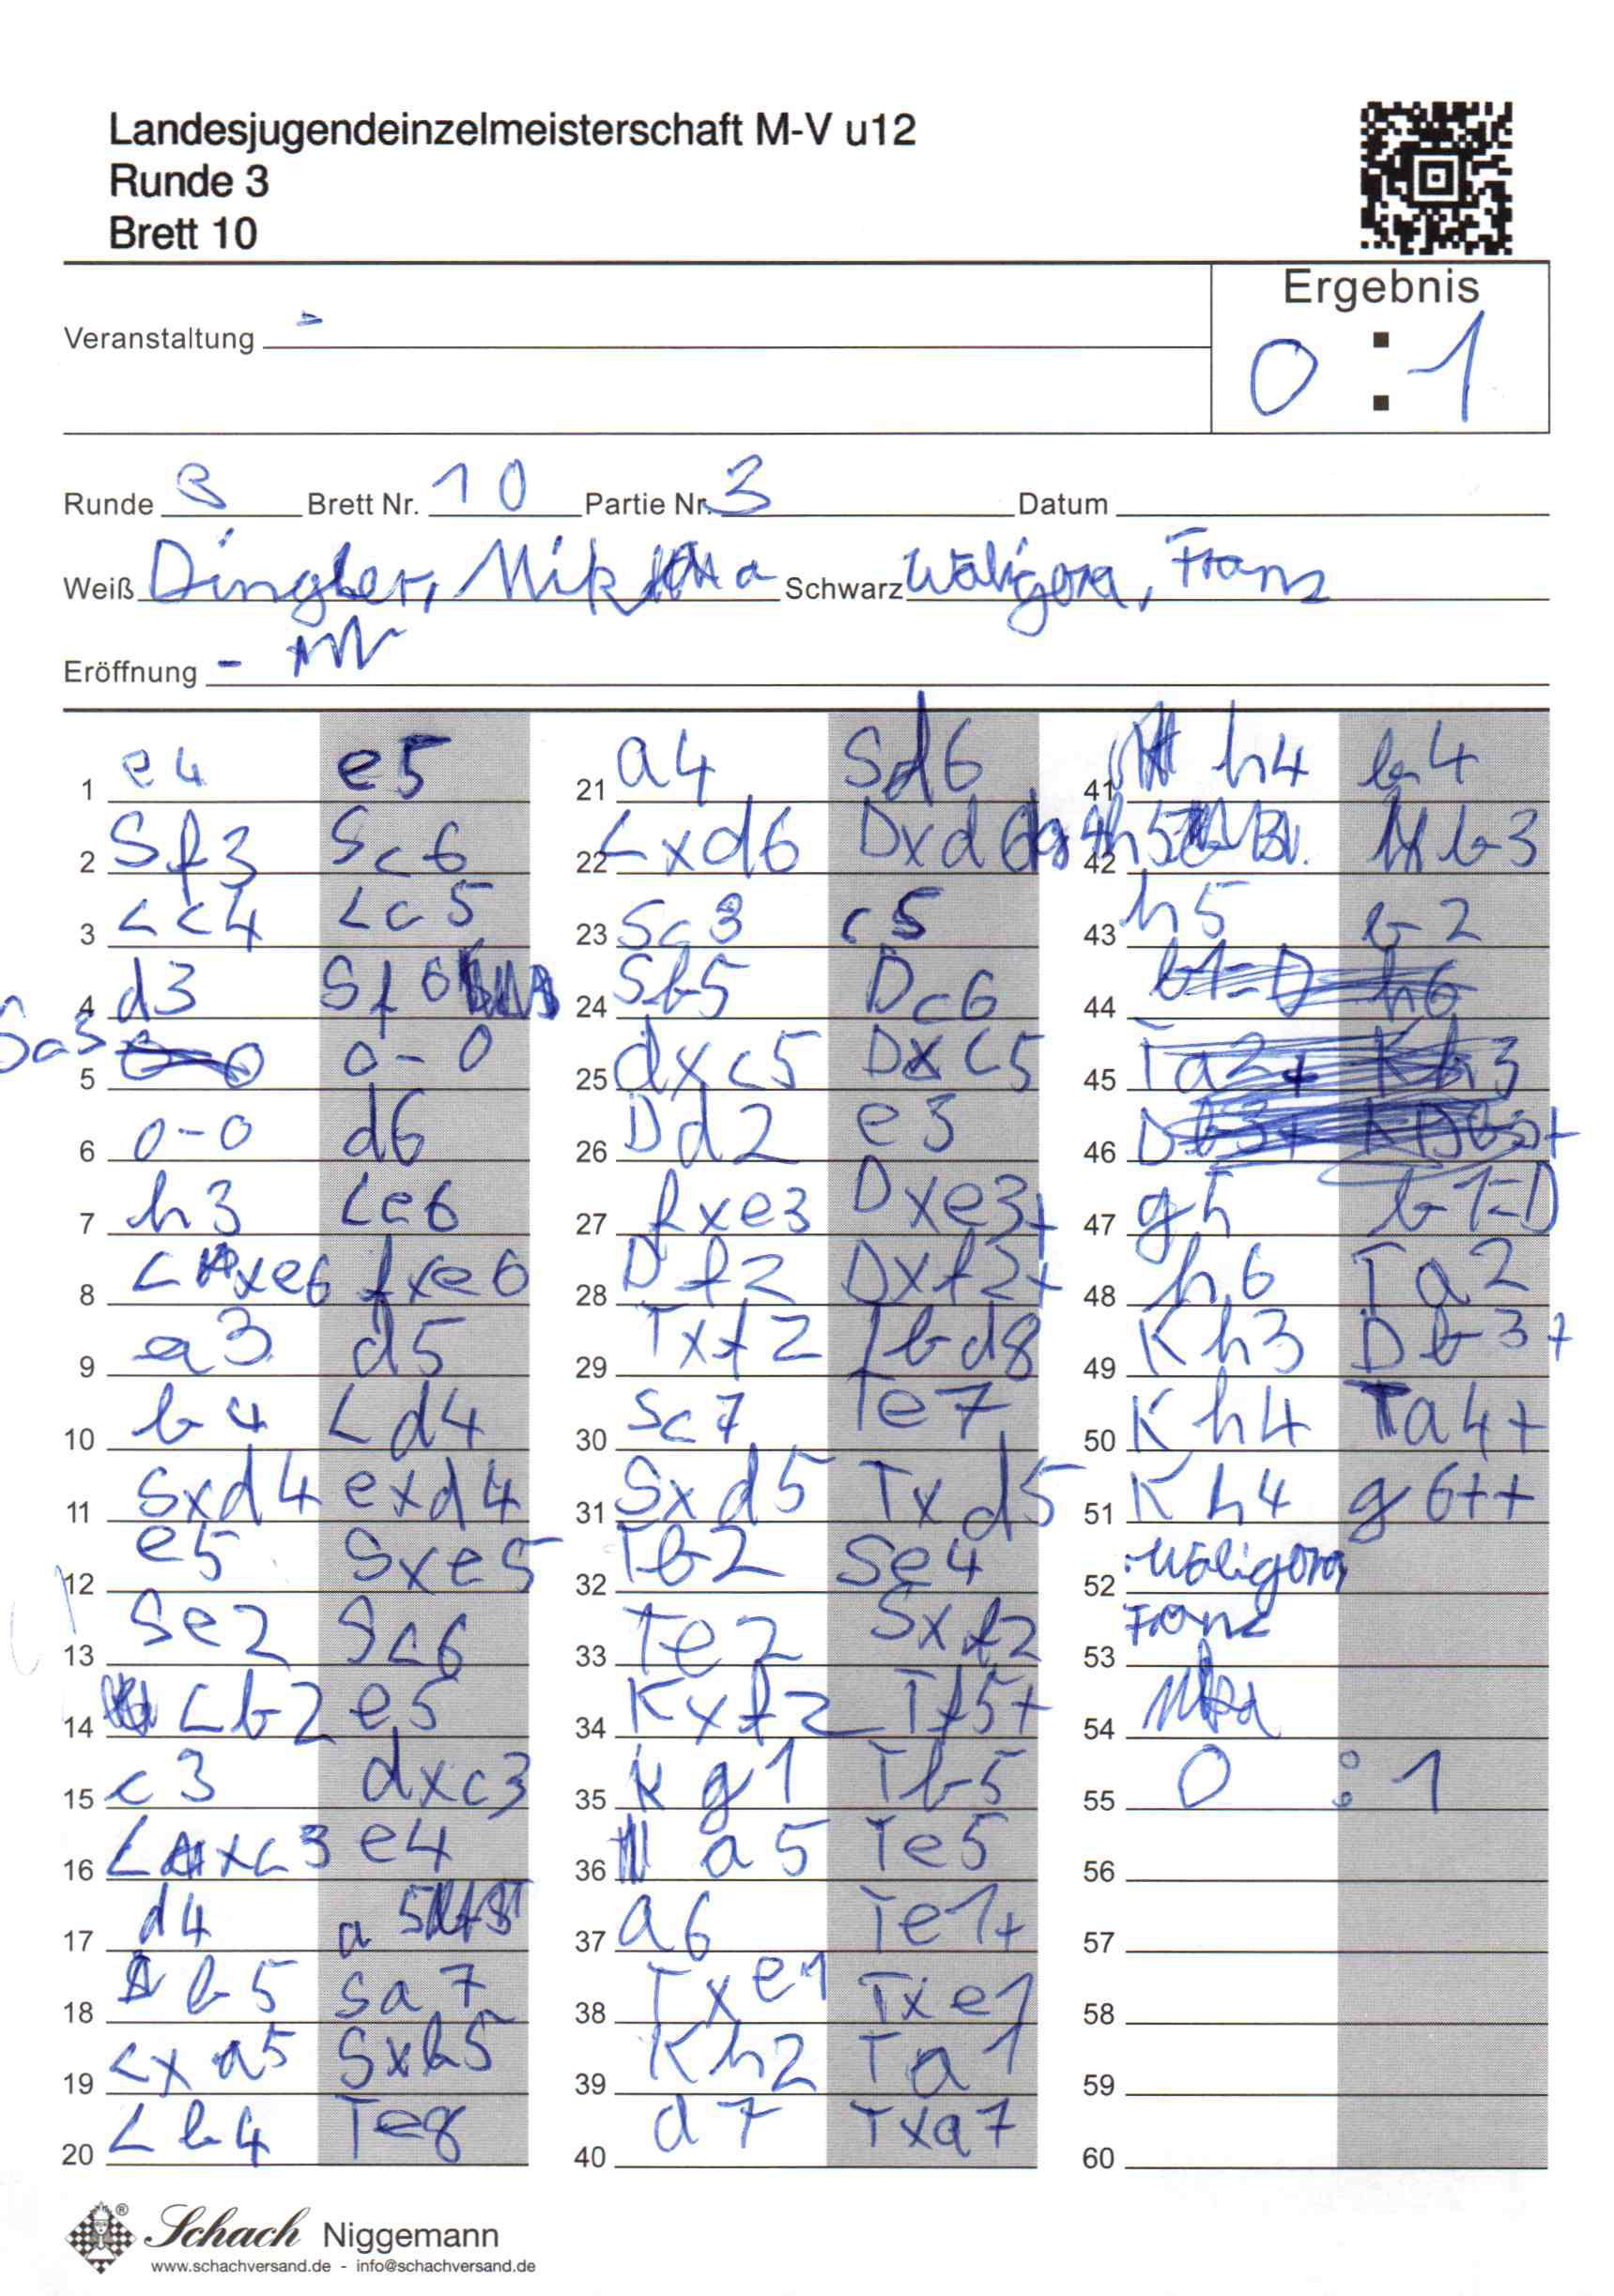 Landesjugendeinzelmeisterschaft M-V u12
Runde 3
Brett 10
Ergebnis
0 : 1
Veranstaltung -
Runde 3 Brett Nr. 10 Partie Nr. 3 Datum
Weiß Dingler, Schwarz Waligora, Franz
Eröffnung -
1 e4 e5
2 Sf3 Sc6
3 Lc4 Lc5
4 d3 Sf6
5 Sa3 0-0
6 0-0 d6
7 h3 Le6
8 Lxe6 fxe6
9 a3 d5
10 b4 Ld4
11 Sxd4 exd4
12 e5 Sxe5
13 Se2 Sc6
14 Lb2 e5
15 c3 dxc3
16 Lxc3 e4
17 d4 a5
18 b5 Sa7
19 Lxa5 Sxb5
20 Lb4 Te8
21 a4 Sd6
22 Lxd6 Dxd6
23 Sc3 c5
24 Sb5 Dc6
25 dxc5 Dxc5
26 Dd2 e3
27 fxe3 Dxe3+
28 Df2 Dxf2+
29 Txf2 Tbd8
30 Sc7 Te7
31 Sxd5 Txd5
32 Tb2 Se4
33 Te2 Sxf2
34 Kxf2 Tf5+
35 Kg1 Tb5
36 a5 Te5
37 a6 Te1+
38 Txe1 Txe1
39 Kh2 Ta1
40 a7 Txa7
41 h4 b4
42 b3
43 h5 b2
44 b1=D h6
45 Ta2+ Kh3
46
47 g5 b1=D
48 h6 Ta2
49 Kh3 Db3+
50 Kh4 Ta4+
51 Kh4 g6++
52 Waligora,
53 Franz
54
55 0 : 1
56
57
58
59
60
Schach Niggemann
www.schachversand.de - info@schachversand.de